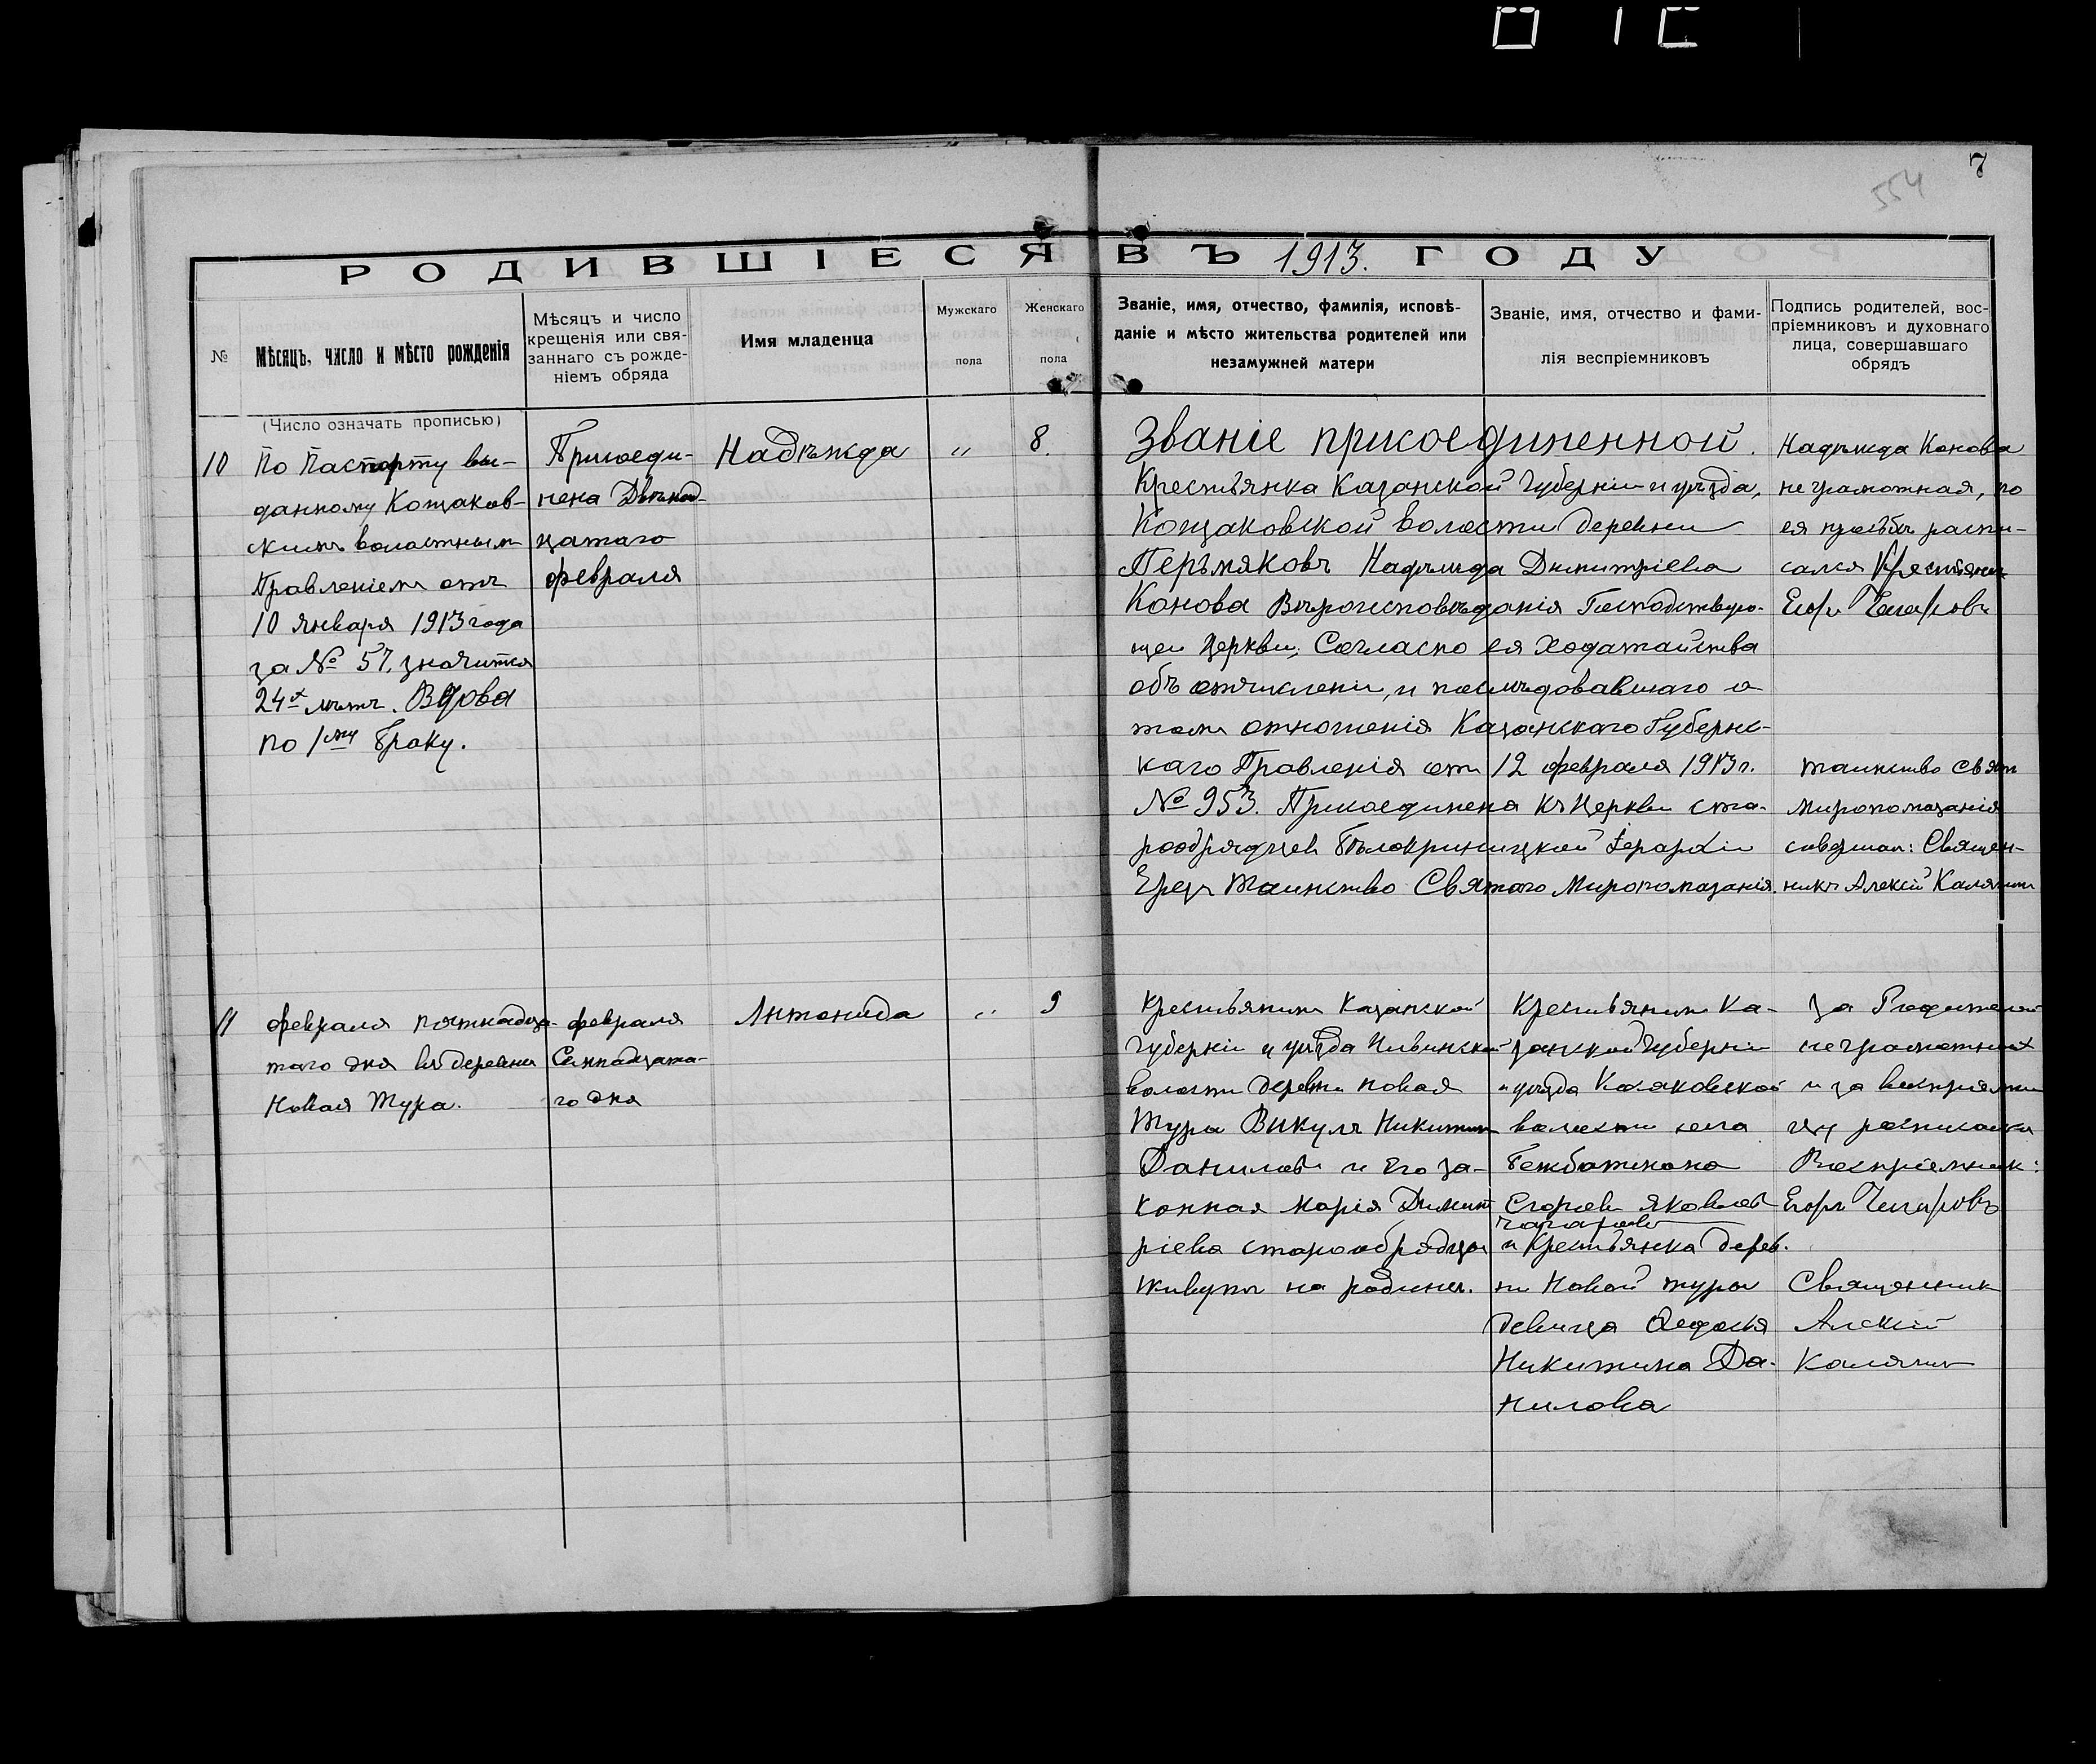 7
554
РОДИВШІЕСЯ ВЪ 1913. ГОДУ
№
Мѣсяцъ, число и мѣсто рожденія
Мѣсяцъ и число
крещенія или свя-
заннаго съ рожде-
ніемъ обряда
Имя младенца
Мужскаго
пола
Женскаго
пола
Званіе, имя, отчество, фамилія, исповѣ-
даніе и мѣсто жительства родителей или
незамужней матери
Званіе, имя, отчество и фами-
лія веспріемниковъ
Подпись родителей, вос-
пріемниковъ и духовнаго
лица, совершавшаго
обрядъ
(Число означать прописью)
10
По Паспорту вы-
данному Кощаков-
скимъ волостнымъ
Правленіемъ отъ
10 января 1913 года
за № 57, значится
24х лѣтъ. Вдова
по 1му браку.
Присоеди-
нена Двѣнад-
цатаго
февраля
Надѣжда
"
8.
Званіе присоединенной.
Крестьянка Казанской Губерніи и уѣзда,
Кощаковской волости деревни
Перьмяковъ Надѣжда Димитріева
Конова Вѣроисповѣданія Господствую-
щей Церкви, Согласно ея Ходатайства
объ отчисленіи, и послѣдовавшаго о
томъ отношенія Казанскаго Губернс-
каго Правленія отъ 12 февраля 1913 г.
№ 953. Присоединена къ Церкви ста-
рообрядцевъ Бѣлокриницкой Іерархіи
Чрезъ Таинство Святаго Миропомазанія.
Надѣжда Конова
неграмотная, по
ея просьбѣ распи-
сался Крестьянинъ
Егоръ Чагаровъ
Таинство Свят
Миропомазанія
совершал: Священ-
никъ Алексій Калягин
11
февраля пятнадца-
таго дня въ деревни
Новая Тура.
февраля
Семнадцата-
го дня
Антонида
"
9
Крестьянинъ Казанской
Губерніи и уѣзда Ильинской
волости деревни Новая
Тура Викулъ Никитинъ
Даниловъ и Его за-
конная Марія Димит
ріева старообрядцы
живутъ на родинѣ.
Крестьянинъ Ка-
занской Губерніи
и уѣзда
волости села
Егоръ Яковлев
Чагаровъ
и Крестьянка дерев.
ни Новой Туры
девица Федосья
Никитина Да-
нилова
За Родителей
неграмотных
и за воспріемни
цу росписался
Воспріемник:
Егоръ Чагаровъ
Священникъ
Алексій
Калягин